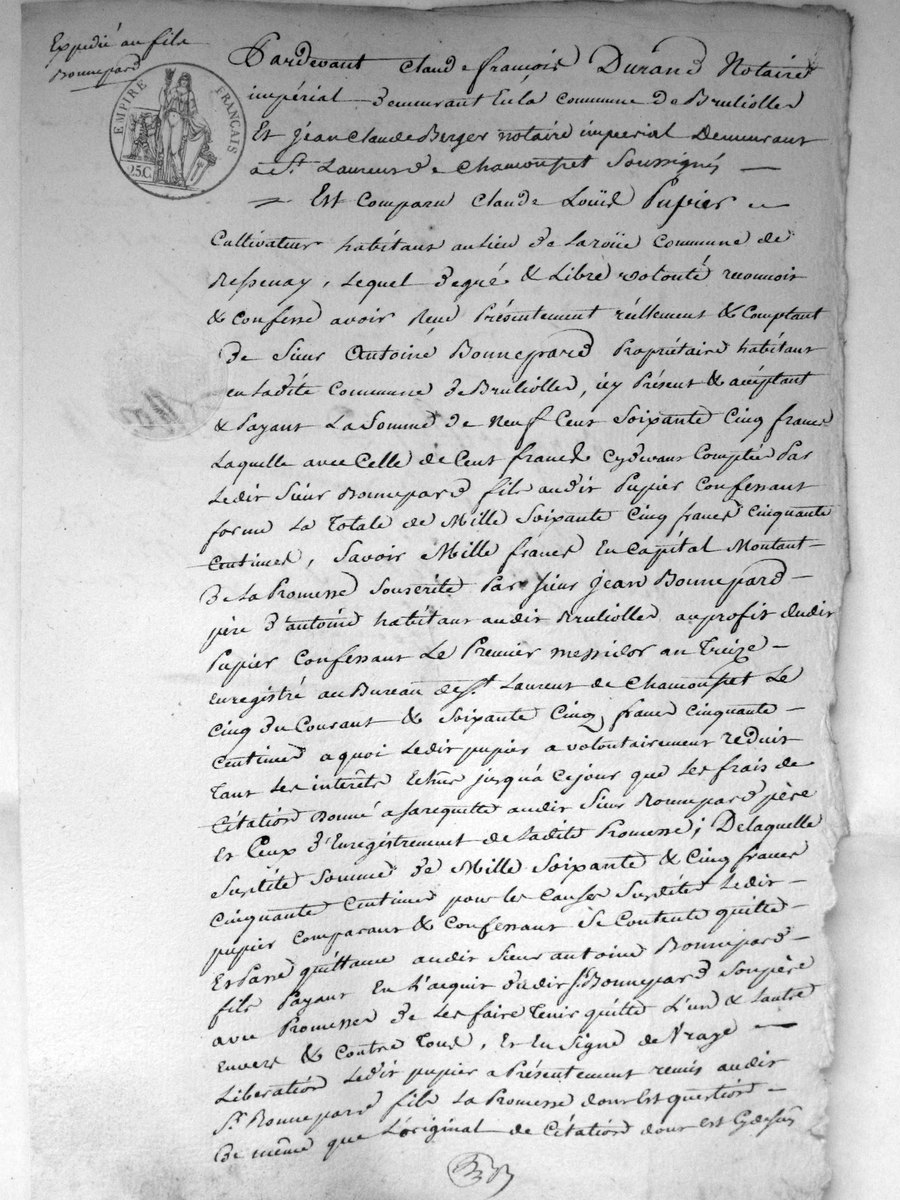 Expedié au fils
Bonnepard
EMPIRE FRANÇAIS
25C.
Pardevant Claude françois Durand Notaire
impérial demeurant En la Commune De Brulliolles
Et Jean Claude Berger notaire imperial Demeurant
a St. Laurent de Chamousset Soussignés
Est Comparu Claude Loüis Pupier
Cultivateur habitant au Lieu De Laroüe Commune de
, Lequel de gré & Libre volonté reconnoit
& Confesse avoir Reçu Présentement réellement & Comptant
De Sieur Antoine Bonnepard Propriétaire habitant
en Ladite Commune de Brulliolles, icy Présent & acceptant
& Payant La Somme De Neuf Cent Soixante Cinq francs
Laquelle avec Celle de Cent francs Cydevant Comptée Par
Ledit Sieur Bonnepard fils audit Pupier Confessant
forme La Totale de Mille Soixante Cinq francs Cinquante
Centimes, Savoir Mille francs En Capital Montant
De La Promesse Souscrite Par Sieur Jean Bonnepard
père d'antoine habitant audit Brulliolles au profit dudit
Pupier Confessant Le Premier messidor an Treize
Enregistré au Bureau de St Laurent de Chamousset Le
Cinq du Courant & Soixante Cinq francs Cinquante
Centimes a quoi Ledit pupier a volontairement reduit
Tant Les interêts Echus jusqu'à Cejour que Les frais de
Citation Donné a Sa requette audit Sieur Bonnepard père
Et Ceux d'Enregistrement de Ladite Promesse; De laquelle
Susdite Somme de Mille Soixante & Cinq francs
Cinquante Centimes pour les Causes Susdites Ledit
pupier Comparant & Confessant Se Contente quitte
Et Passe quittance audit Sieur antoine Bonnepard
fils Payant En L'acquit dudit Sr Bonnepard Son père
avec Promesse de Les faire Tenir quitte L'un & Lautre
Envers & Contre Tous, Et En Signe de Vraye
Liberation Ledit pupier a Présentement remis audit
Sr. Bonnepard fils La Promesse dont Est question
De même que L'original de Citation dont Est Cydessus